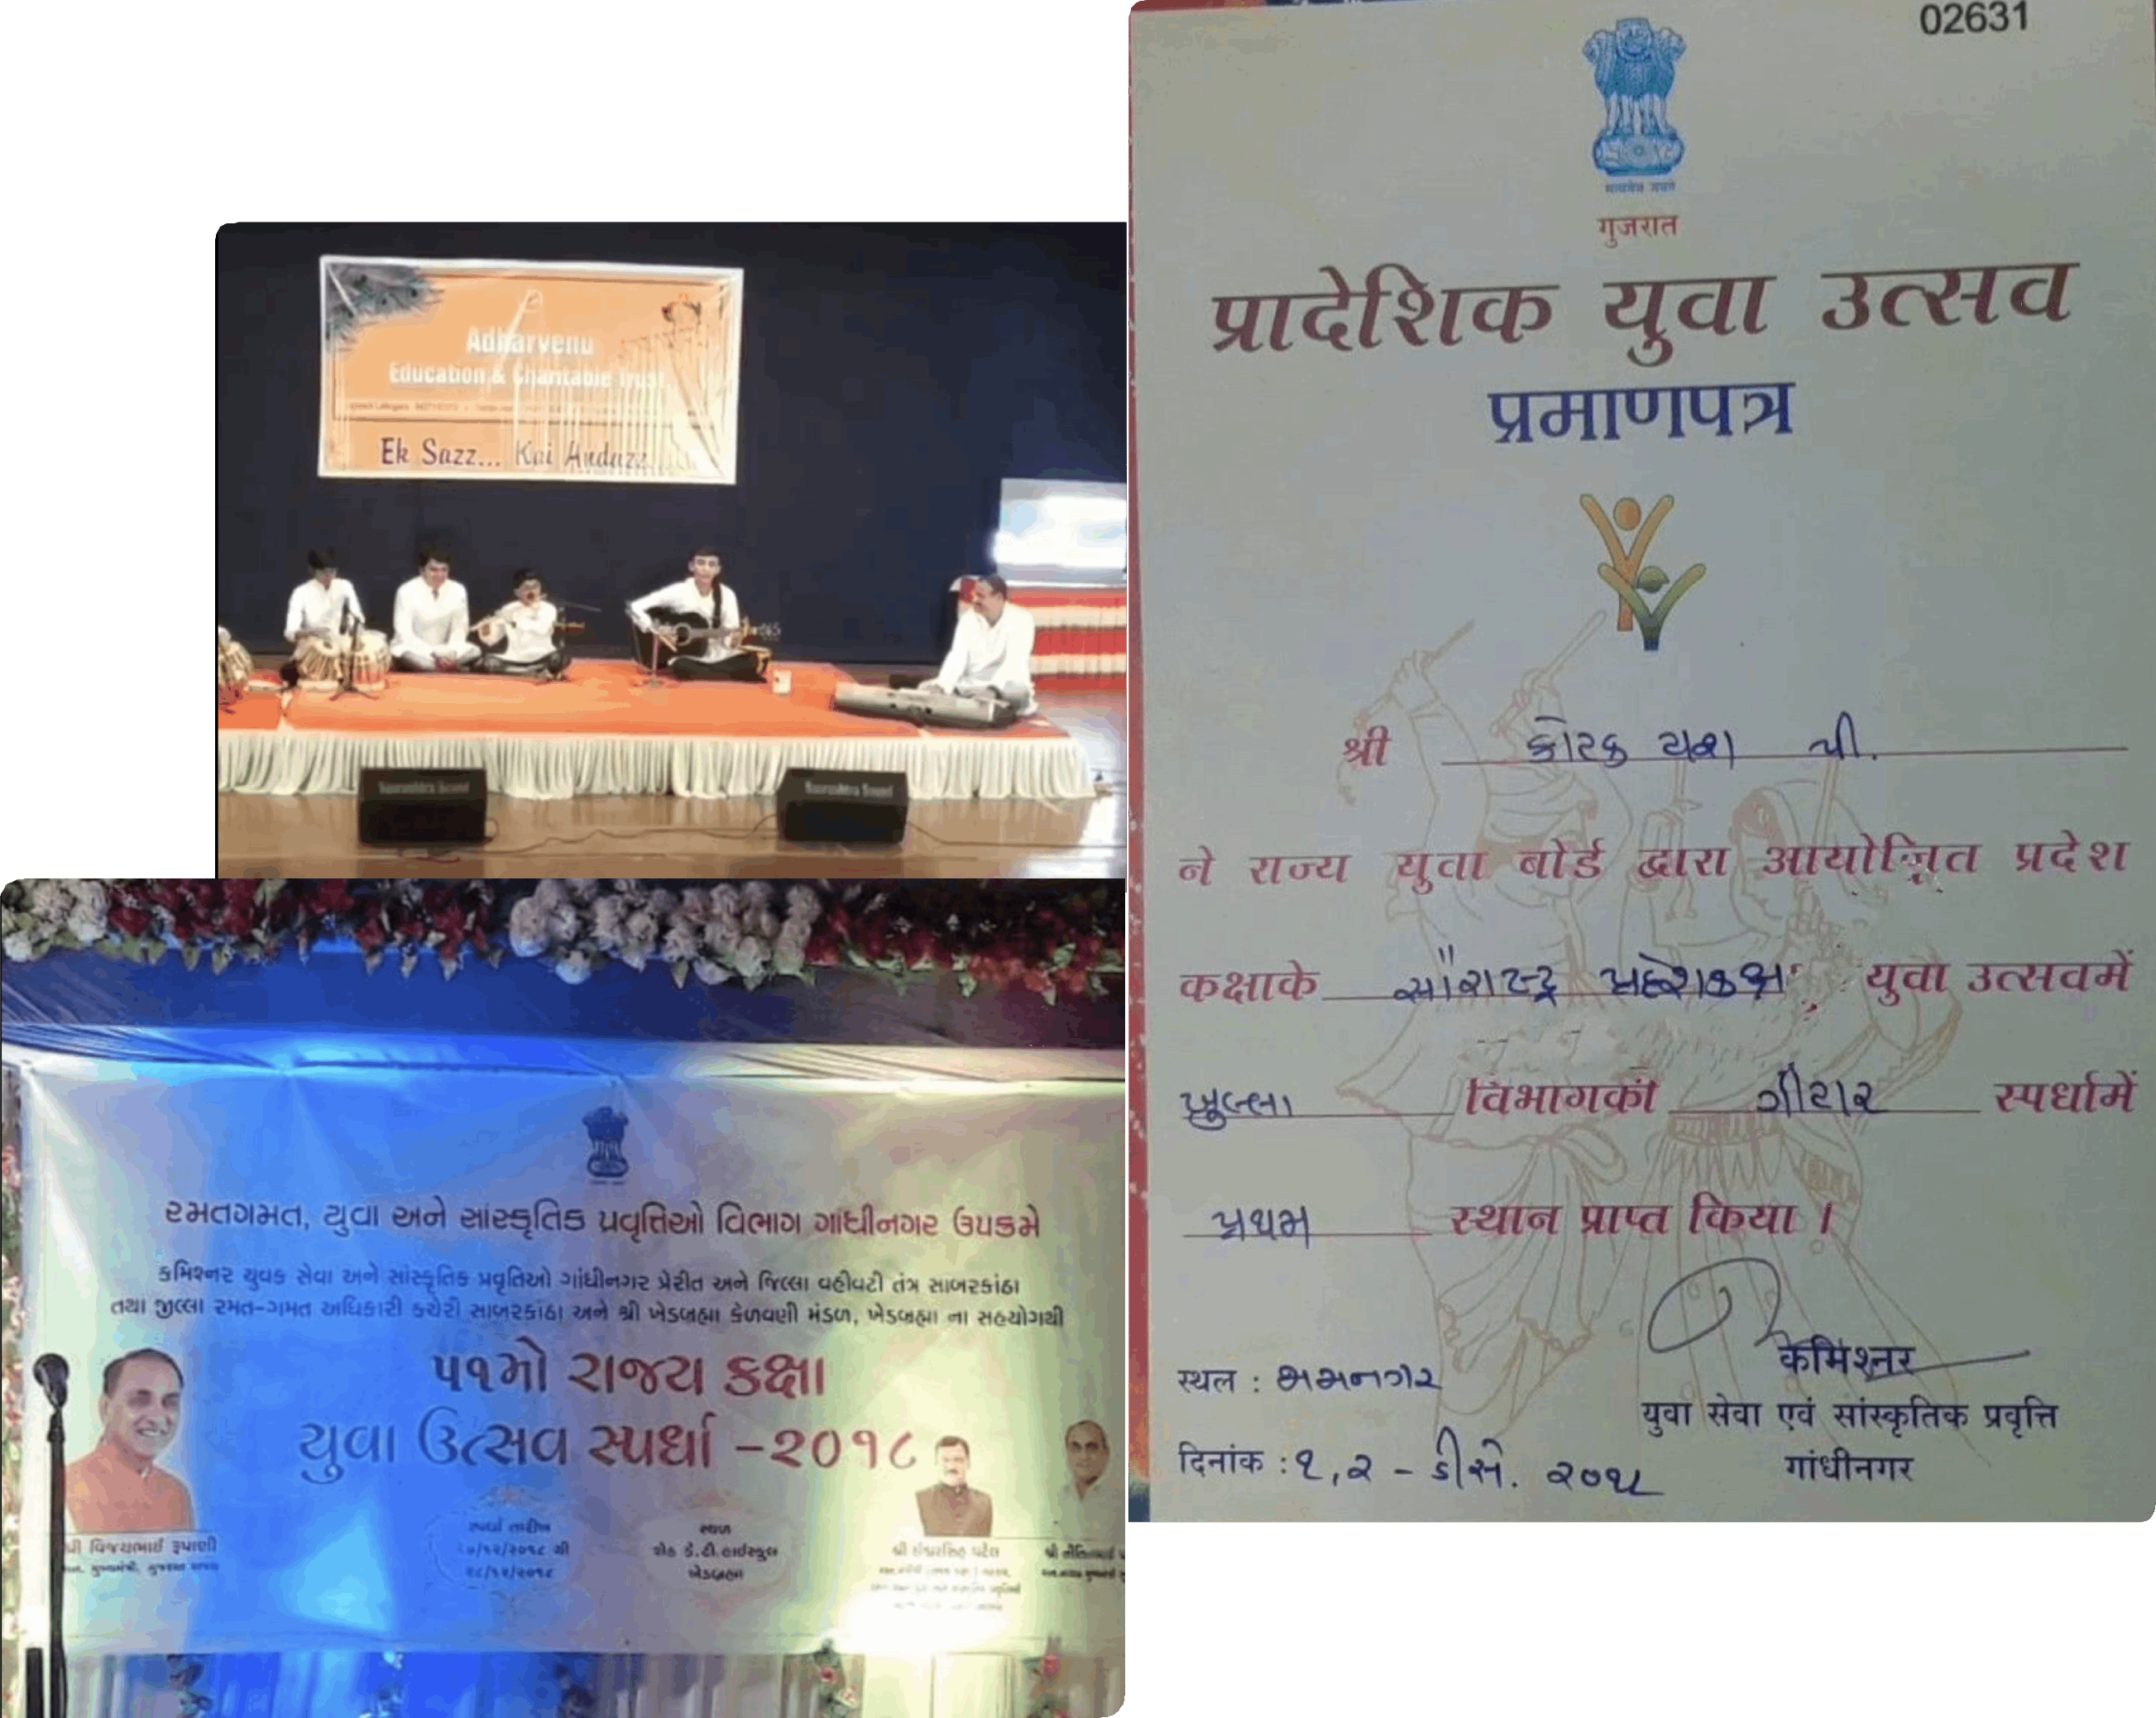 Adharvenu
Education & Charitable Trust
Ek Sazz... Kai Andazz...
Saurashtra Sound
Saurashtra Sound
રમતગમત, યુવા અને સાંસ્કૃતિક પ્રવૃત્તિઓ વિભાગ ગાંધીનગર ઉપક્રમે
કમિશ્નર યુવક સેવા અને સાંસ્કૃતિક પ્રવૃતિઓ ગાંધીનગર પ્રેરીત અને જિલ્લા વહીવટી તંત્ર સાબરકાંઠા
તથા જીલ્લા રમત-ગમત અધિકારી કચેરી સાબરકાંઠા અને શ્રી ખેડબ્રહ્મા કેળવણી મંડળ, ખેડબ્રહ્મા ના સહયોગથી
૫૧મો રાજ્ય કક્ષા
યુવા ઉત્સવ સ્પર્ધા -૨૦૧૮
સ્પર્ધા તારીખ
સ્થળ
શેઠ કે.ટી.હાઈસ્કૂલ
ખેડબ્રહ્મા
શ્રી વિજયભાઈ રૂપાણી
શ્રી ઈશ્વરસિંહ પટેલ
02631
सत्यमेव जयते
गुजरात
प्रादेशिक युवा उत्सव
प्रमाणपत्र
श्री કોટક યશ પી.
ने राज्य युवा बोर्ड द्वारा आयोजित प्रदेश
कक्षाके સૌરાષ્ટ્ર પ્રદેશકક્ષા युवा उत्सवमें
ખુલ્લા विभागकी ગીટાર स्पर्धामें
પ્રથમ स्थान प्राप्त किया ।
स्थल : જામનગર
दिनांक : ૧,૨ - ડીસે. ૨૦૧૮
कमिश्नर
युवा सेवा एवं सांस्कृतिक प्रवृत्ति
गांधीनगर